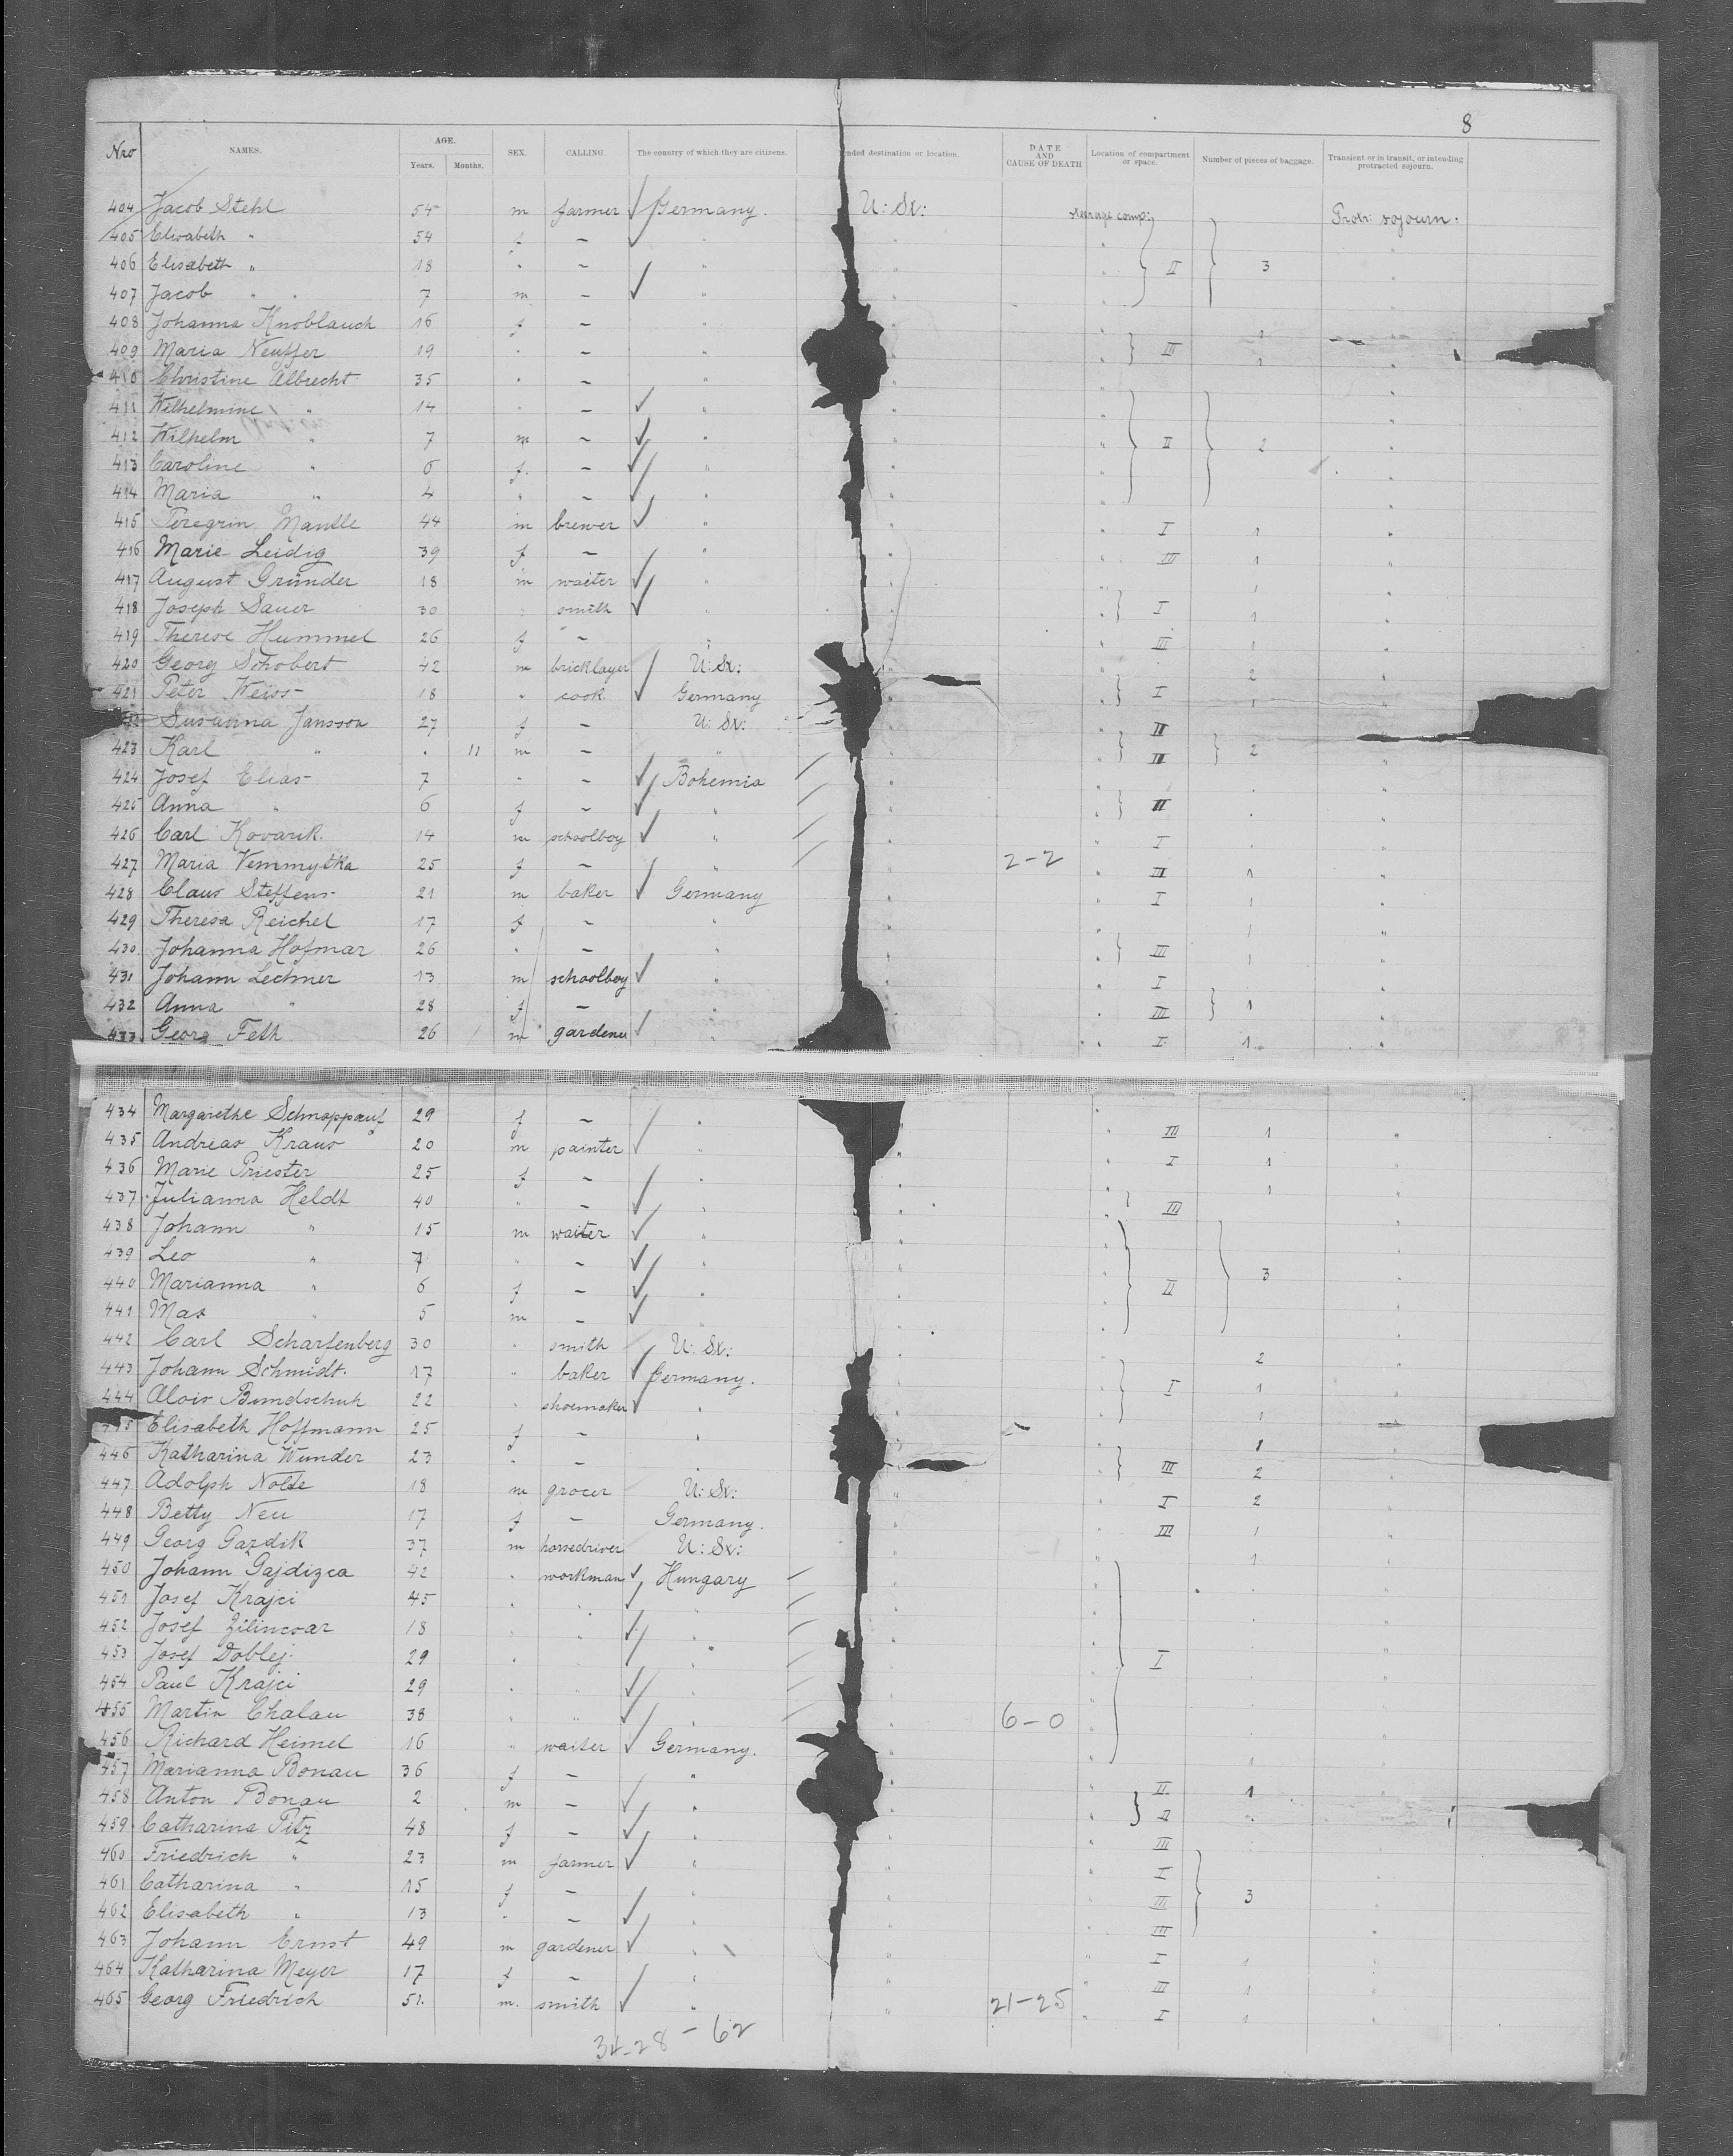 8
Nro NAMES. AGE. Years. Months. SEX. CALLING. The country of which they are citizens. ended destination or location. DATE AND CAUSE OF DEATH Location of compartment or space. Number of pieces of baggage. Transient or in transit, or intending protracted sojourn.
404 Jacob Stehl 54 m farmer Germany. U: St: steerage comp: Protr: sojourn:
405 Elisabeth " 54 f –
406 Elisabeth " 18 " – " II 3
407 Jacob " 7 m –
408 Johanna Knoblauch 16 f – " 1
409 Maria Neuffer 19 " – " III 1
410 Christine Albrecht 35 " – "
411 Wilhelmine " 14 " – "
412 Wilhelm " 7 m – " II 2
413 Caroline " 6 f. – "
414 Maria " 4 " – "
415 Peregrin Mantle 44 m brewer " I 1
416 Marie Leidig 39 f – " III 1
417 August Gründer 18 m waiter " 1
418 Joseph Sauer 30 " smith " I 1
419 Therese Hummel 26 f – " III 1
420 Georg Schobert 42 m bricklayer U: St: 2
421 Peter Weiss 18 " cook Germany I 1
Susanna Jansson 27 f – U: St: II
423 Karl " 11 m – " II 2
424 Josef Elias 7 " – Bohemia
425 Anna " 6 f – " II
426 Carl Kovarik. 14 m schoolboy " I
427 Maria Vemmytka 25 f – " 2-2 III 1
428 Claus Steffens 21 m baker Germany I 1
429 Theresa Reichel 17 f – " 1
430 Johanna Hofmar 26 " – " III 1
431 Johann Lechner 13 m schoolboy " I
432 Anna " 28 f – " III 1
433 Georg Feth 26 m gardener " I 1
434 Margarethe Schnappauf 29 f – " III 1
435 Andreas Kraus 20 m painter " I 1
436 Marie Priester 25 f – " 1
437 Julianna Heldt 40 " – " III
438 Johann " 15 m waiter "
439 Leo " 7 " – "
440 Marianna " 6 f – " II 3
441 Max " 5 m – "
442 Carl Scharfenberg 30 " smith U: St: 2
443 Johann Schmidt. 17 " baker Germany. I 1
444 Alois Bundschuh 22 " shoemaker " 1
Elisabeth Hoffmann 25 f – " 1
446 Katharina Wunder 23 " – " III 2
447 Adolph Nolte 18 m grocer U: St: I 2
448 Betty Neu 17 f – Germany. III 1
449 Georg Gazdik 37 m horsedriver U: St: 1
450 Johann Gajdizca 42 " workman Hungary
451 Josef Krajci 45 " " "
452 Josef Zilincsar 18 " " "
453 Josef Doblej 29 " " " I
454 Paul Krajci 29 " " "
455 Martin Chalau 38 " " " 6-0
456 Richard Heimel 16 " waiter Germany. 1
457 Marianna Bonau 36 f – " II 1
458 Anton Bonau 2 m – " II
459 Catharina Pitz 48 f – " III
460 Friedrich " 23 m farmer " I
461 Catharina " 15 f – " III 3
462 Elisabeth " 13 " – " III
463 Johann Ernst 49 m gardener " I 1
464 Katharina Meyer 17 f – " III 1
465 Georg Friedrich 51. m. smith " 21-25 I 1
34-28-62